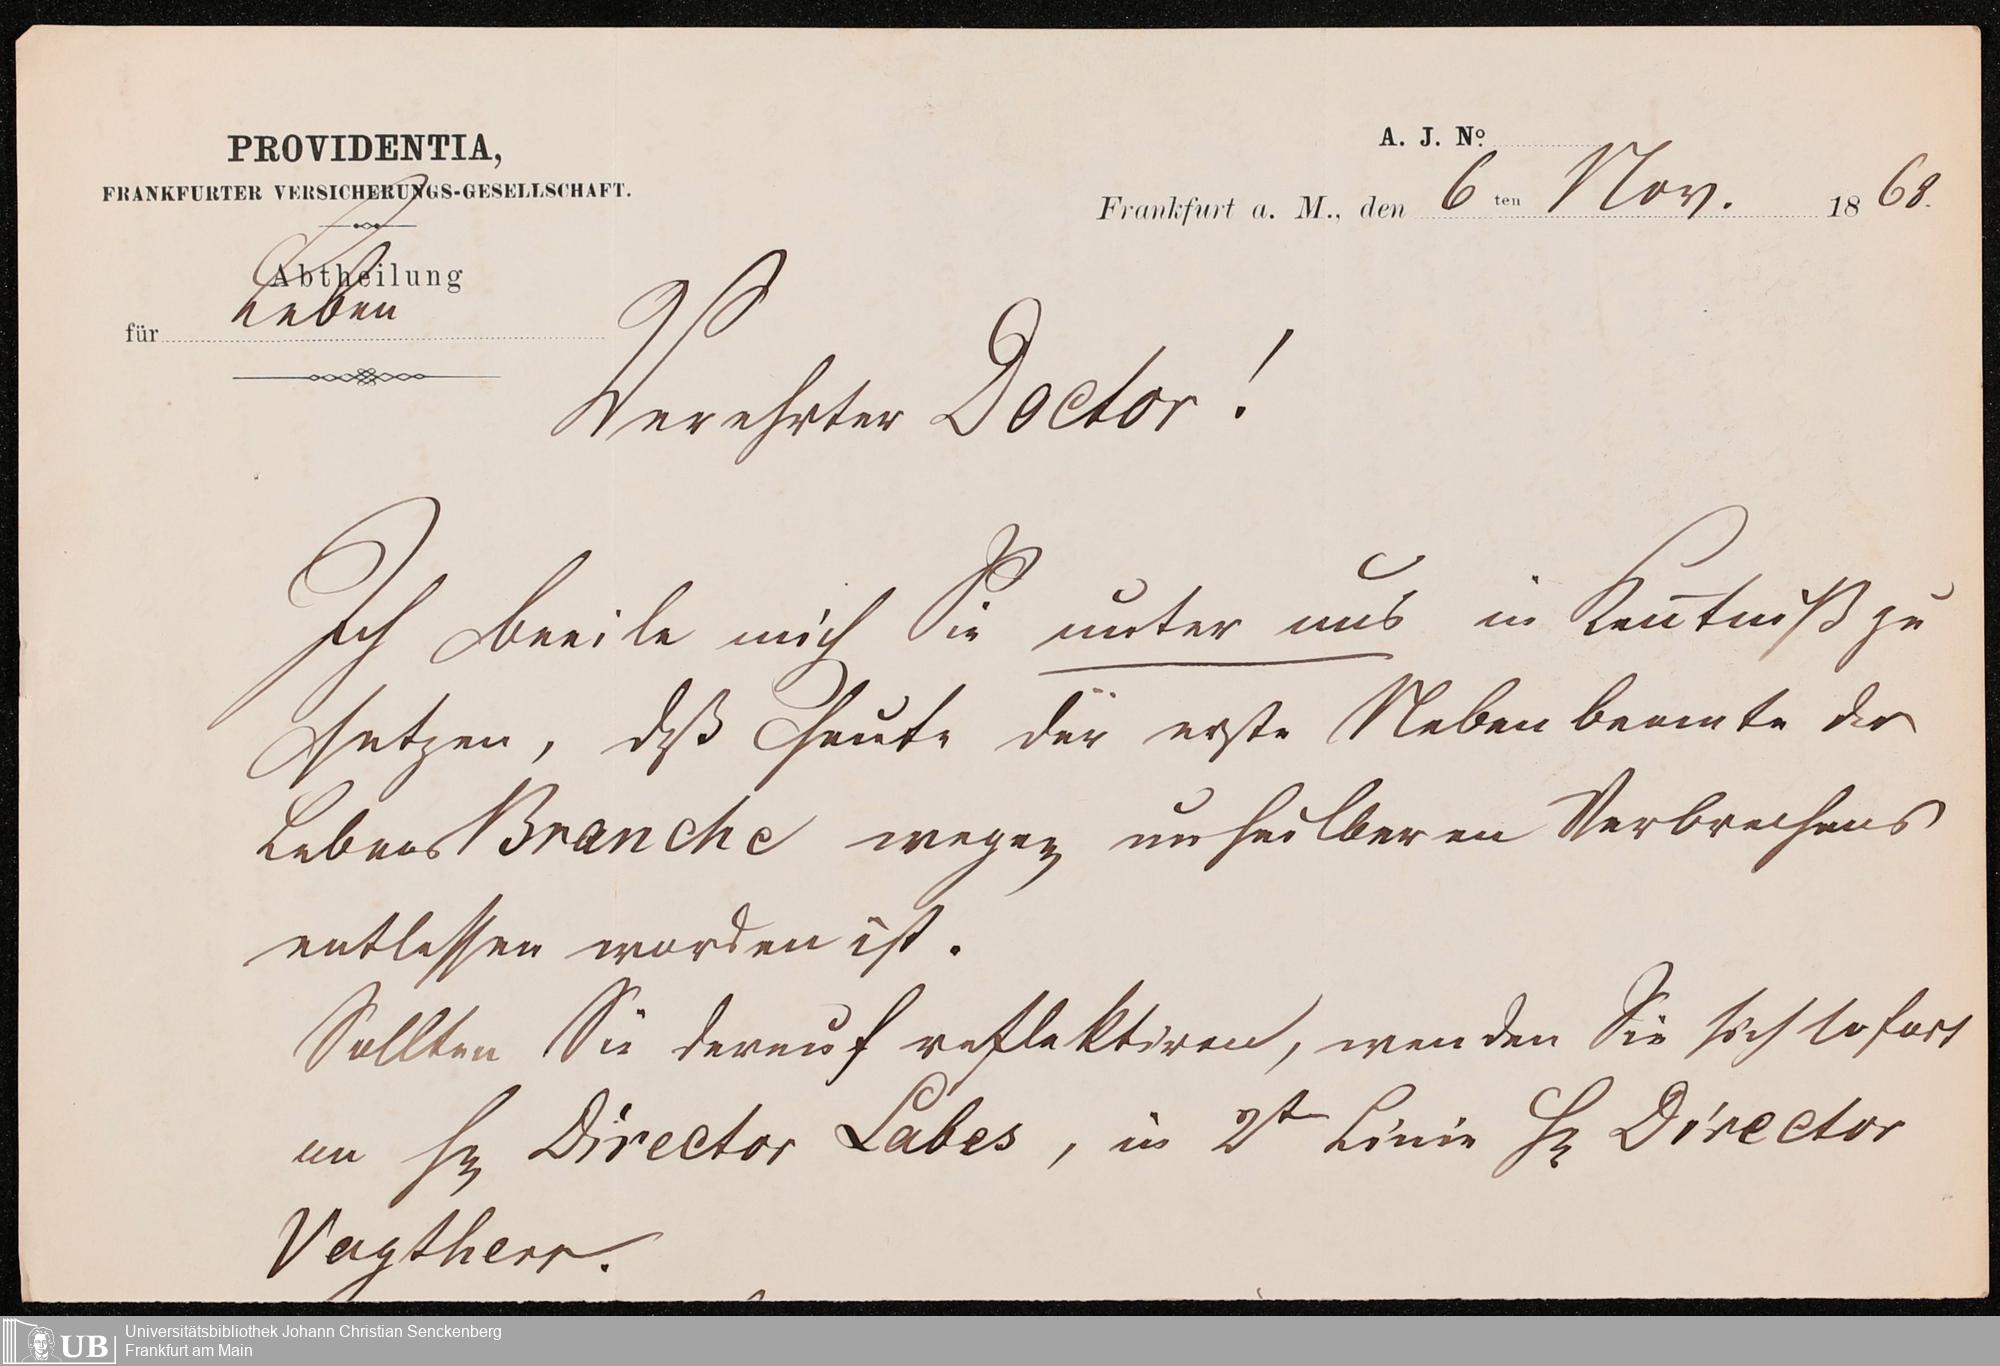 PROVIDENTIA,
FRANKFURTER VERSICHERUNGS-GESELLSCHAFT.
Abtheilung
für Leben
A. J. No.
Frankfurt a. M., den 6 ten Nov. 1868.
Verehrter Doctor!
Ich beeile mich Sie unter uns in Kenntniß zu
setzen, daß heute der erste Nebenbeamte der
Lebens Branche wegen unheilbaren Verbrechens
entlassen worden ist.
Sollten Sie darauf reflektiren, wenden Sie sich sofort
an Hr Director Labes, in 2t Linie Hr Director
Vagtherr.
UB
Universitätsbibliothek Johann Christian Senckenberg
Frankfurt am Main